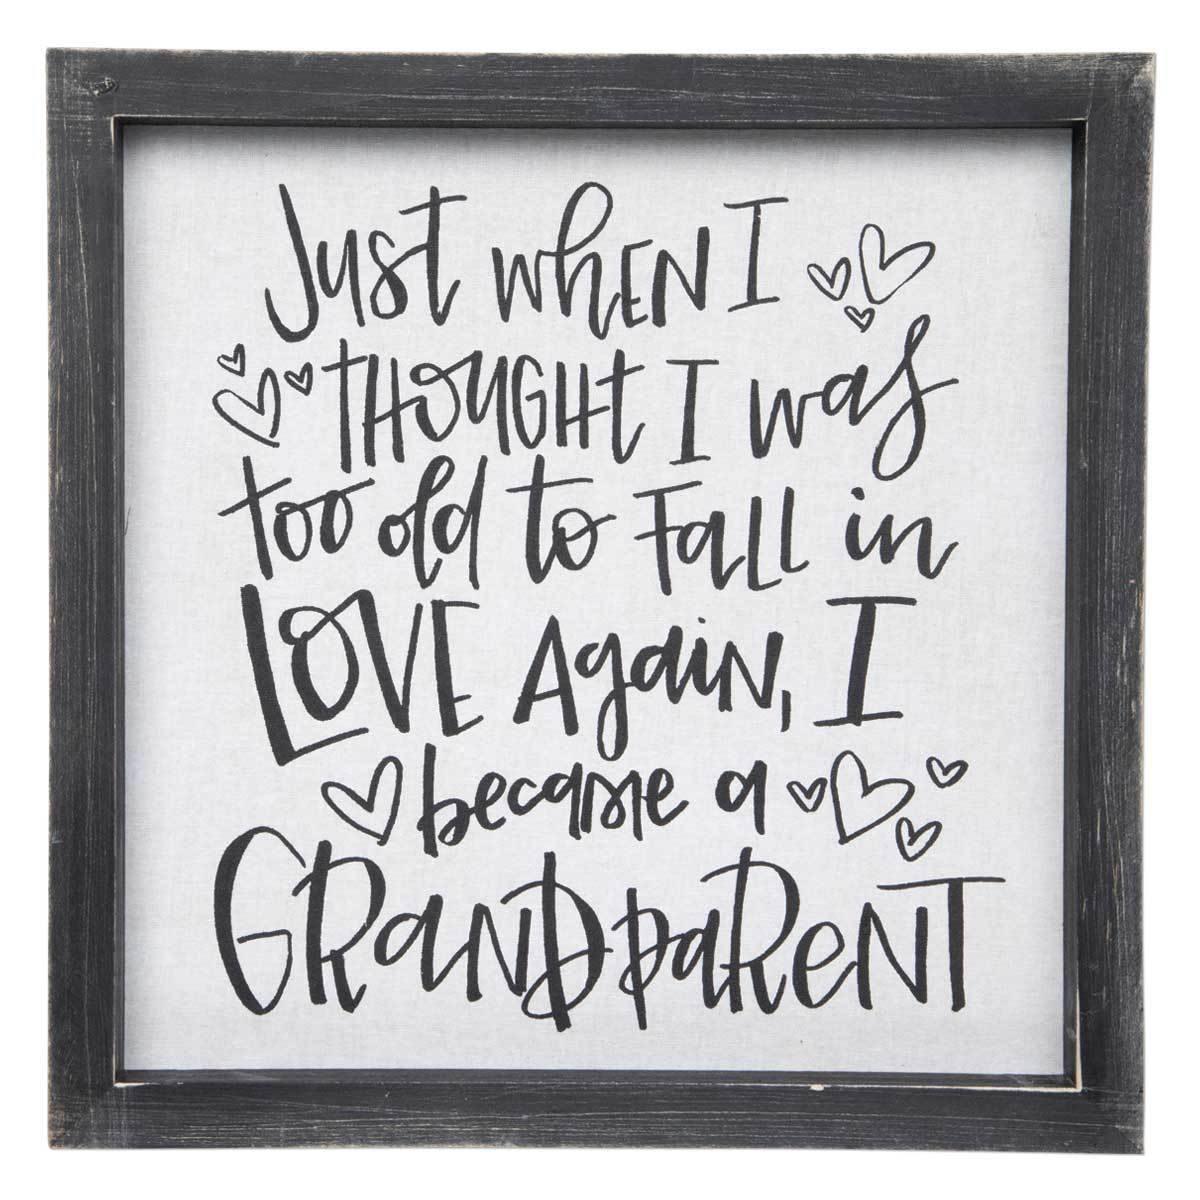 Just wHEN I
tHOUGHt I was
too old to Fall in
LOVE AgaiN, I
became a
GRaNDpaReNT